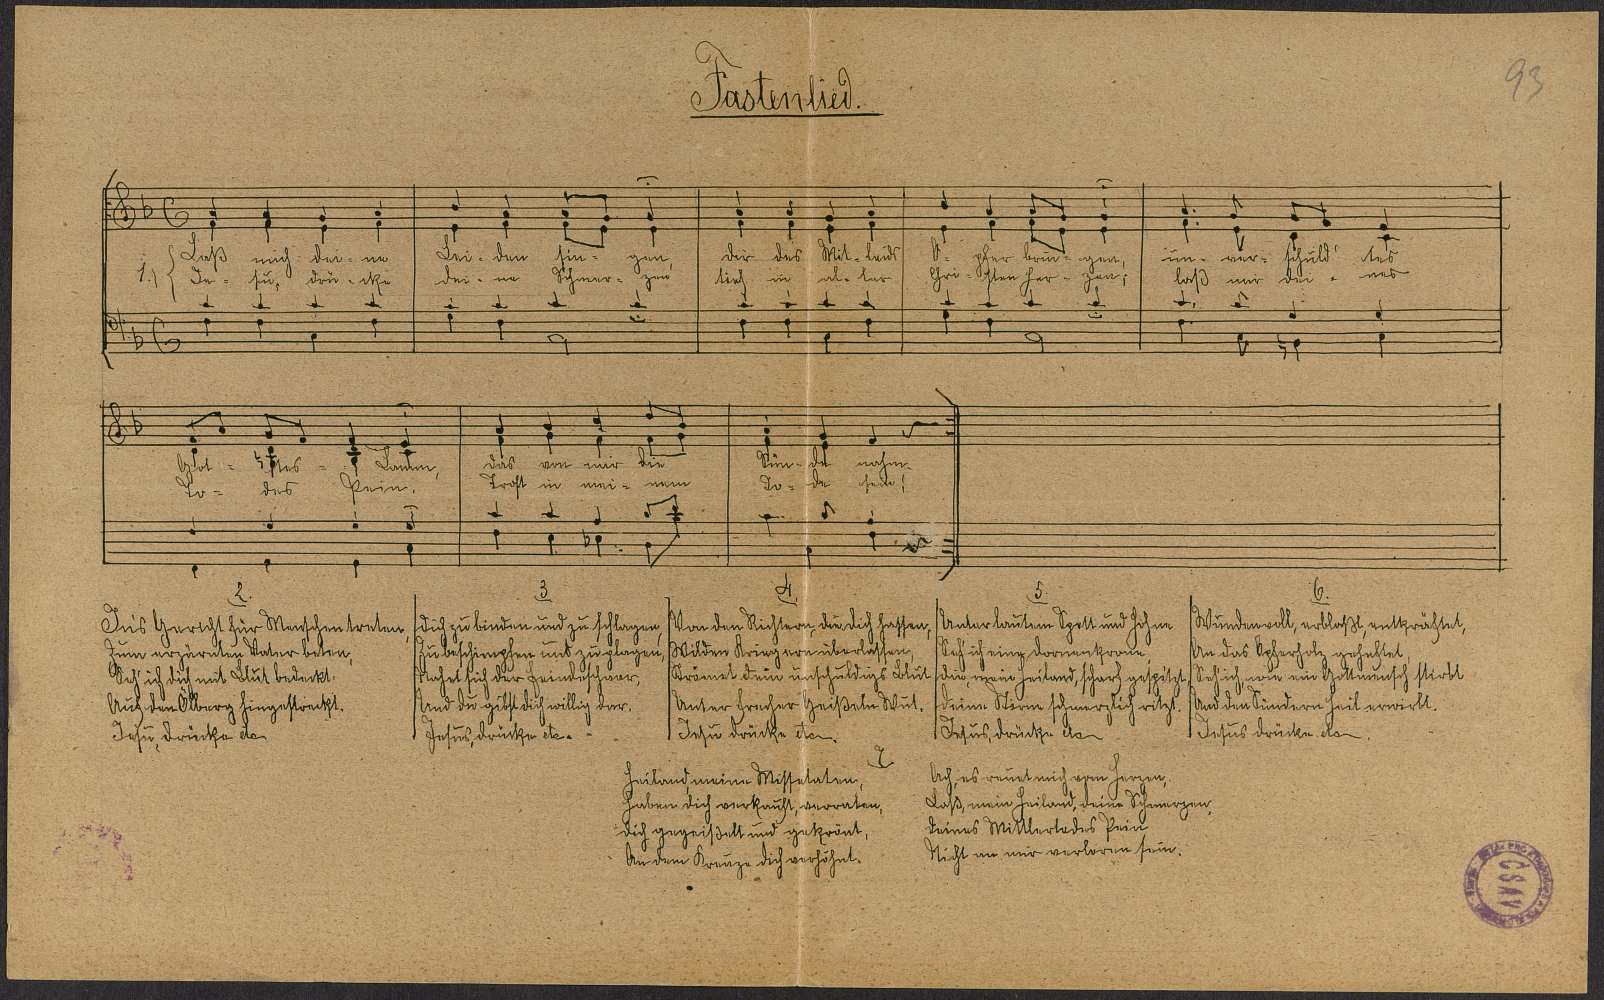 Fastenlied.
93
1.) Laß mich dei - ne Lei - den sin - gen dir des Mit - leids O - pfer brin - gen, un - ver - schuld' tes
Je - su, drü - cke dei - ne Schmer - zen tief in al - ler Chri - sten Her - zen; laß mir dei - nes
Got - tes - Lamm, das von mir die Sün - de nahm.
To - des Pein. Trost in mei - nem To - de sein!
2.
In's Gericht für Menschen treten,
Zum erzürnten Vater beten,
Seh' ich dich mit Blut bedeckt.
Auf den Ölberg hingestreckt.
Jesu, drücke etc
3
Dich zu binden und zu schlagen,
Zu beschimpfen und zu plagen,
Nahet sich der Feinde schaar,
Und du gibst dich willig dar.
Jesus, drücke etc.
4.
Von den Richtern, die dich hassen,
Wilden Kriegern überlassen,
Strömet dein unschuldigs Blut
Unter frecher Geißeln Wut.
Jesu drücke etc.
5.
Unter lautem Spott und Hohne
Seh ich eine Dornenkrone
Die, mein Heiland, scharf gespitzt
Deine Stirne schmerzlich ritzt.
Jesus, drücke etc
6.
Wundenvoll, erblaßt, entkräftet,
An das Opferholz geheftet,
Seh ich, wie ein Gottmensch stirbt
Und den Sündern Heil erwirbt.
Jesus drücke etc.
7
Heiland, meine Missetaten,
Haben dich verkauft, verraten,
Dich gegeißelt und gekrönt,
An dem Kreuze dich verhöhnt.
Ach, es reuet mich vom Herzen,
Laß, mein Heiland, deine Schmerzen,
Deines Mittlertodes Pein
Nicht an mir verloren sein.
ČSAV